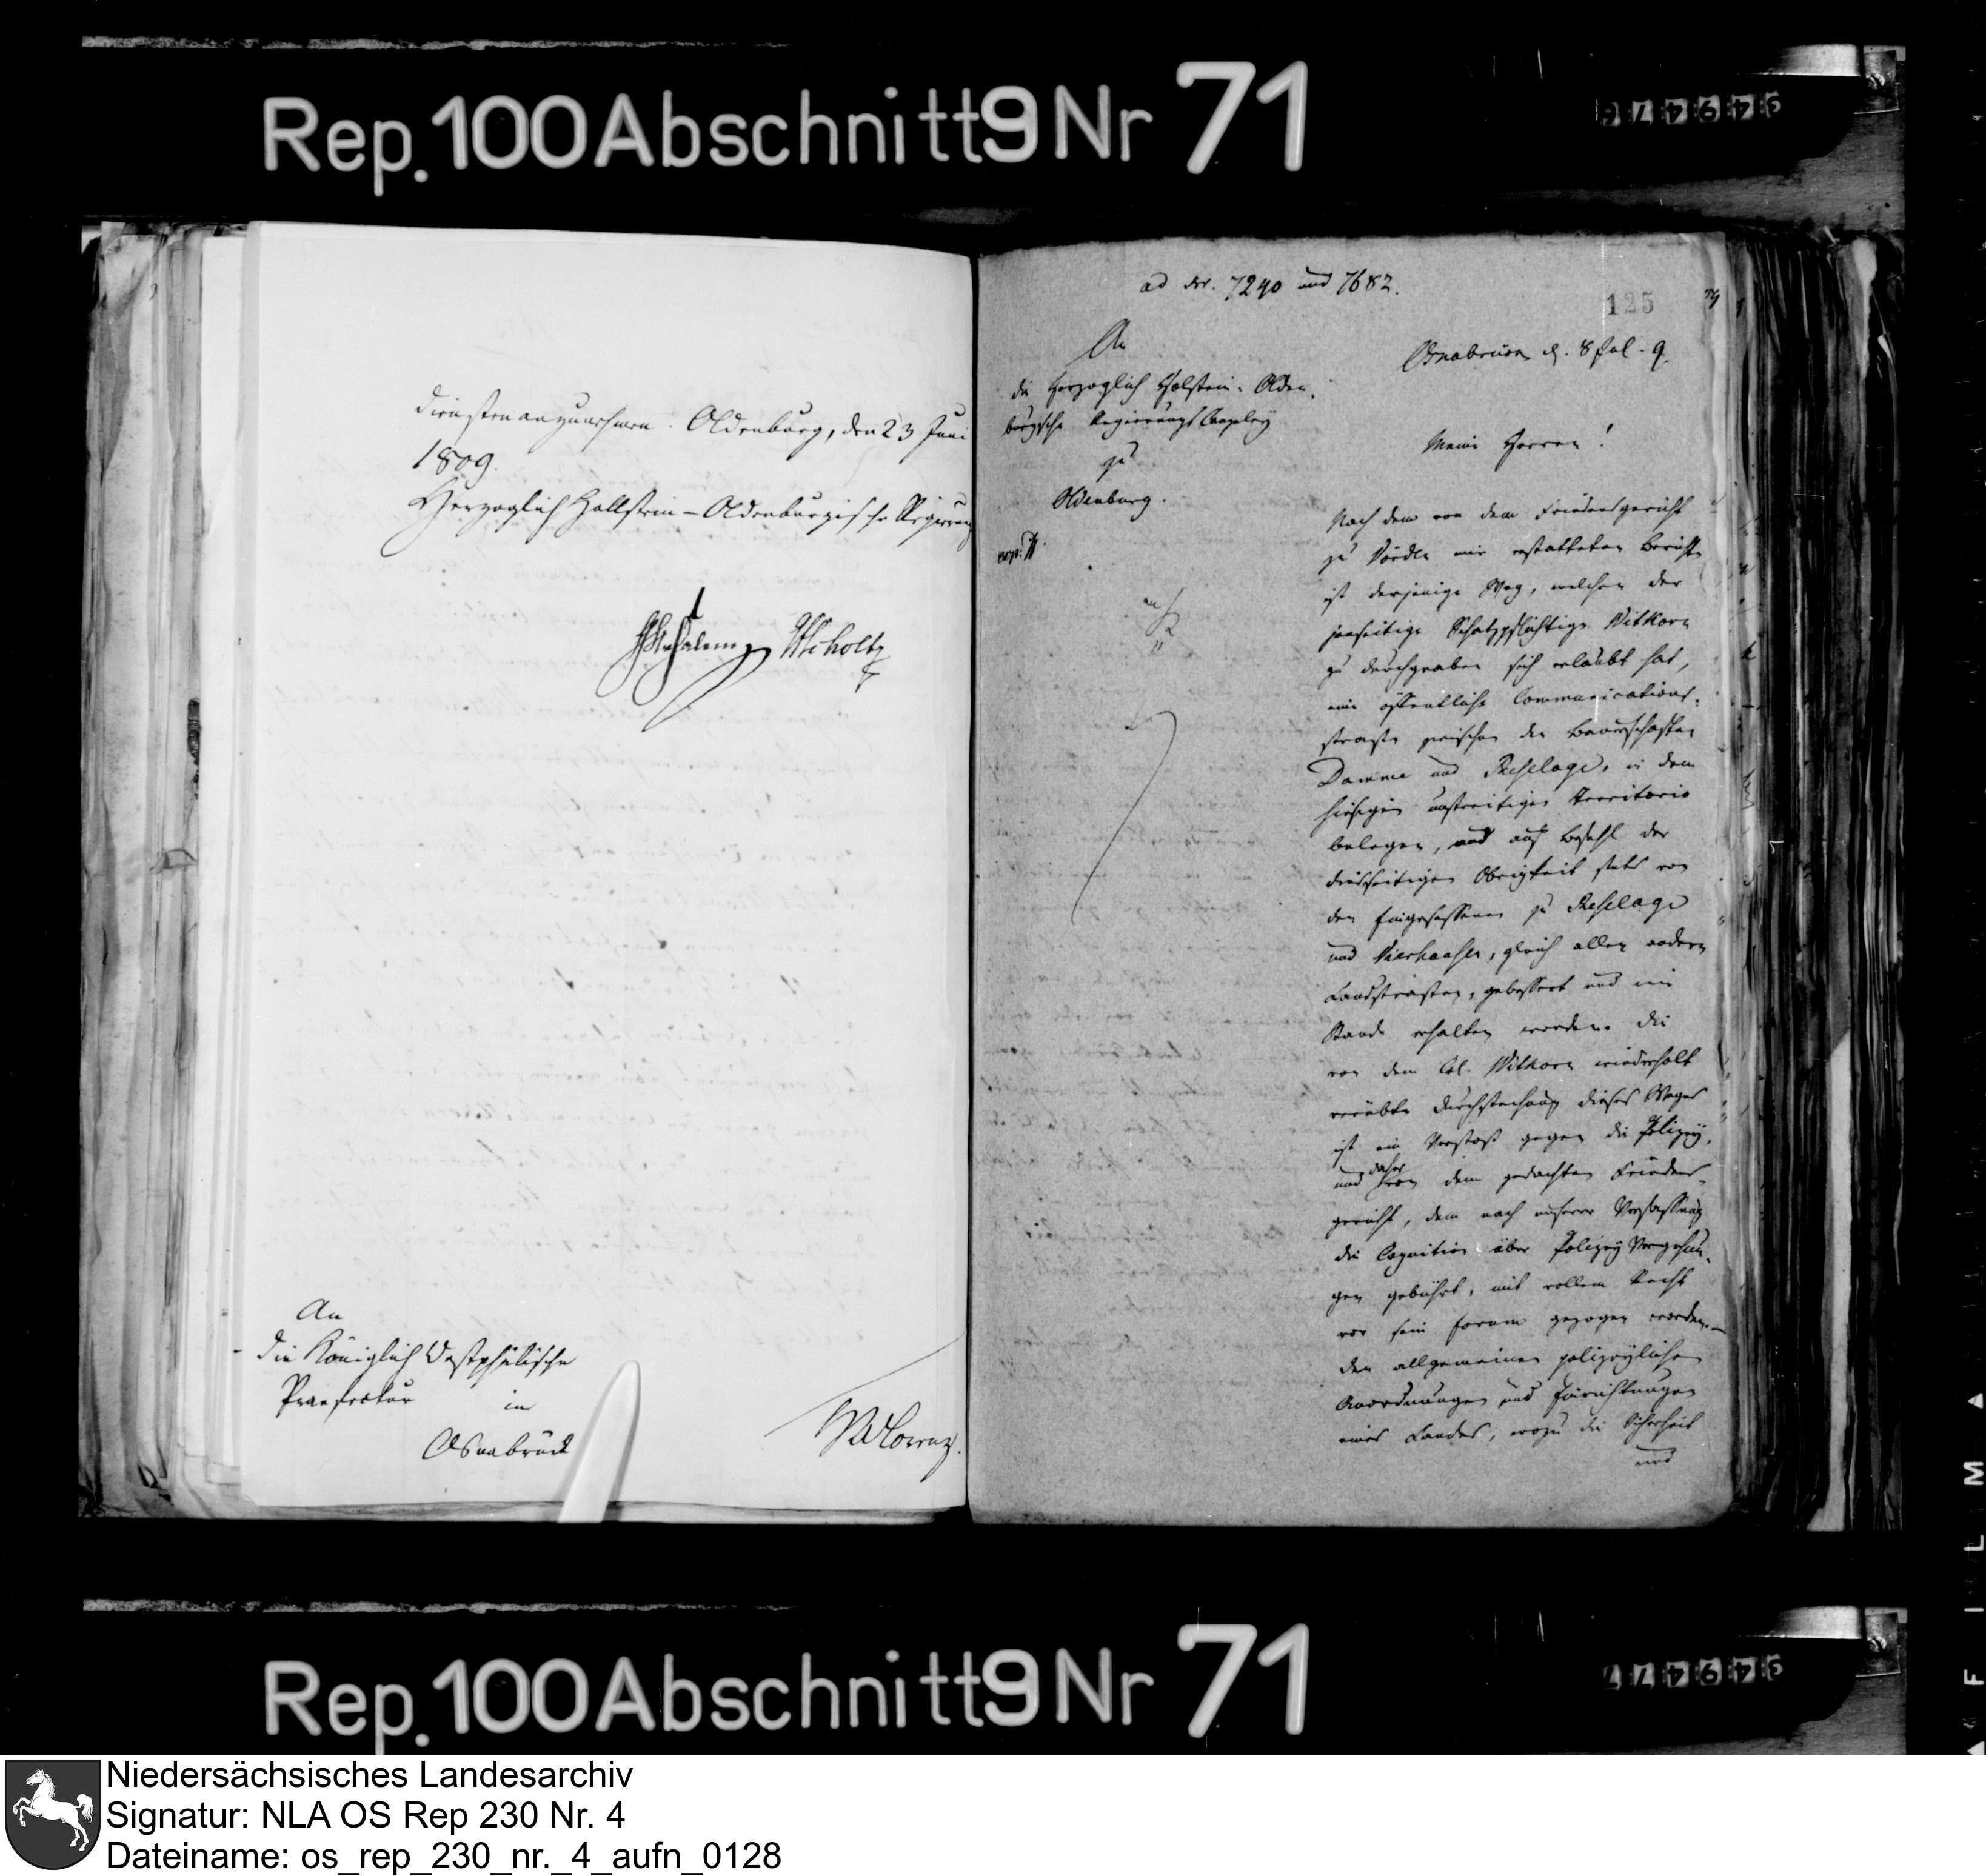 Rep. 100 Abschnitt 9 Nr 71
diensten anzunehmen. Oldenburg, den 23 Juni
1809.
Herzoglich Hollstein-Oldenburgische Regierung
Scholtz
An
die Königlich Westphälische
Praefectur in
Osnabrück
Lorenz.
ad Nr. 7240 und 7682.
125
An
die Herzoglich Holstein-Olden-
burgische Regierungs Canzley
zu
Oldenburg.
Osnabrück d. 8 Jul. 9.
Meine Herren!
Nach dem von dem Friedensgericht
zu Vörden mir erstatteten Bericht
ist derjenige Weg, welchen der
jenseitige Schatzpflichtige Witkorn
zu durchgraben sich erlaubt hat,
eine öffentliche Communications-
straße zwischen den Bauerschaften
Damme und Reselage, in dem
hiesigen unstreitigen Territorio
belegen, und auf Befehl der
diesseitigen Obrigkeit stets von
den Eingesessenen zu Reselage
und Vierhausen, gleich allen andern
Landstraßen, gebessert und im
Stande erhalten worden. Die
von dem Col. Witkorn wiederholt
verübte Durchstechung dieses Weges
ist ein Verstoß gegen die Polizey,
und daher von dem gedachten Friedens-
gericht, dem nach unserer Verfassung
die Cognition über Polizey Vergehun-
gen gebührt, mit vollem Recht
vor sein Forum gezogen worden.—
Den allgemeinen polizeylichen
Anordnungen und Einrichtungen
eines Landes, wozu die Sicherheit
und
Rep. 100 Abschnitt 9 Nr 71
FILM
Niedersächsisches Landesarchiv
Signatur: NLA OS Rep 230 Nr. 4
Dateiname: os_rep_230_nr._4_aufn_0128